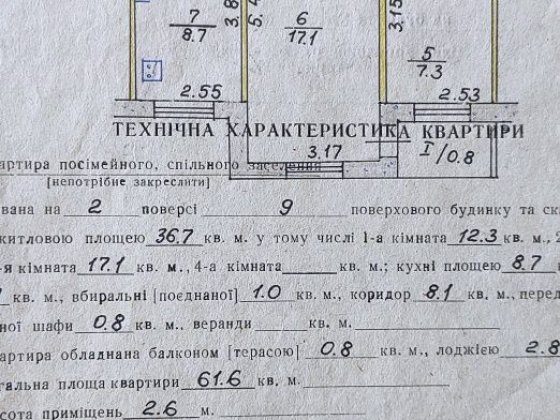 7 6
8.7 3,8 5, 17.1 3,15 5
7.3
2.55 2.53
ТЕХНІЧНА ХАРАКТЕРИСТИКА КВАРТИРИ
3.17 I/0.8
артира посімейного, спільного заселення
[непотрібне закреслити]
вана на 2 поверсі 9 поверхового будинку та ск
житловою площею 36.7 кв. м. у тому числі 1-а кімната 12.3 кв. м., 2
-я кімната 17.1 кв. м., 4-а кімната кв. м.; кухні площею 8.7
кв. м., вбиральні [поєднаної] 1.0 кв. м., коридор 8.1 кв. м., перед
ної шафи 0.8 кв. м., веранди кв. м.
артира обладнана балконом [терасою] 0.8 кв. м., лоджією 2.8
гальна площа квартири 61.6 кв. м.
сота приміщень 2.6 м.